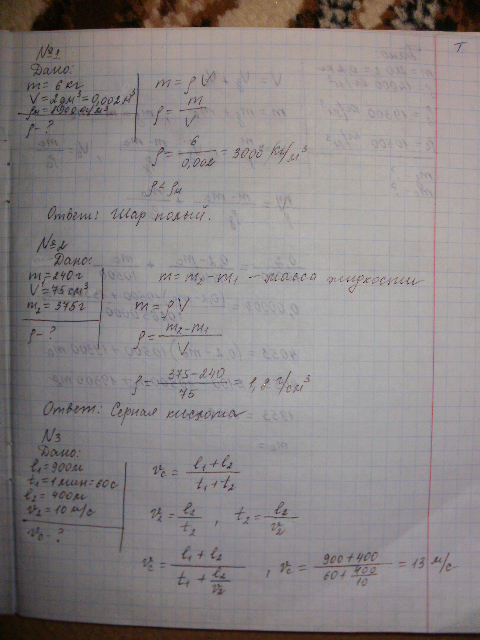 №1
Дано:
m = 6 кг
V = 2 дм³ = 0,002 м³
ρ - ?
m = ρ V
ρ = m/V
ρ = 6/0,002 = 3000 кг/м³
Ответ: Шар полый.
№2
Дано:
m₁ = 240 г
V = 75 см³
m₂ = 375 г
ρ - ?
m = m₂ - m₁ - масса жидкости
m = ρ V
ρ = (m₂ - m₁)/V
ρ = (375 - 240)/75 = 1,8 г/см³
Ответ: Серная кислота
№3
Дано:
l₁ = 900 м
t₁ = 1 мин = 60 с
l₂ = 400 м
v₂ = 10 м/с
vc - ?
vc = (l₁ + l₂)/(t₁ + t₂)
v₂ = l₂/t₂ , t₂ = l₂/v₂
vc = (l₁ + l₂)/(t₁ + l₂/v₂) , vc = (900 + 400)/(60 + 400/10) = 13 м/с